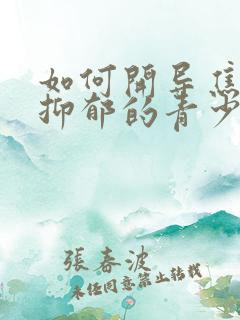 如何開导焦
抑郁的青少
張春波
未经同意禁止转载